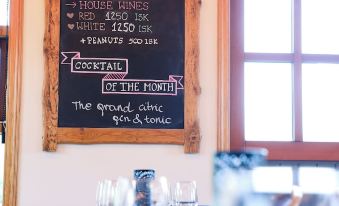 → HOUSE WINES
♥ RED 1250 ISK
♥ WHITE 1250 ISK
+PEANUTS 500 ISK
COCKTAIL
OF THE MONTH
The grand citric
gin & tonic